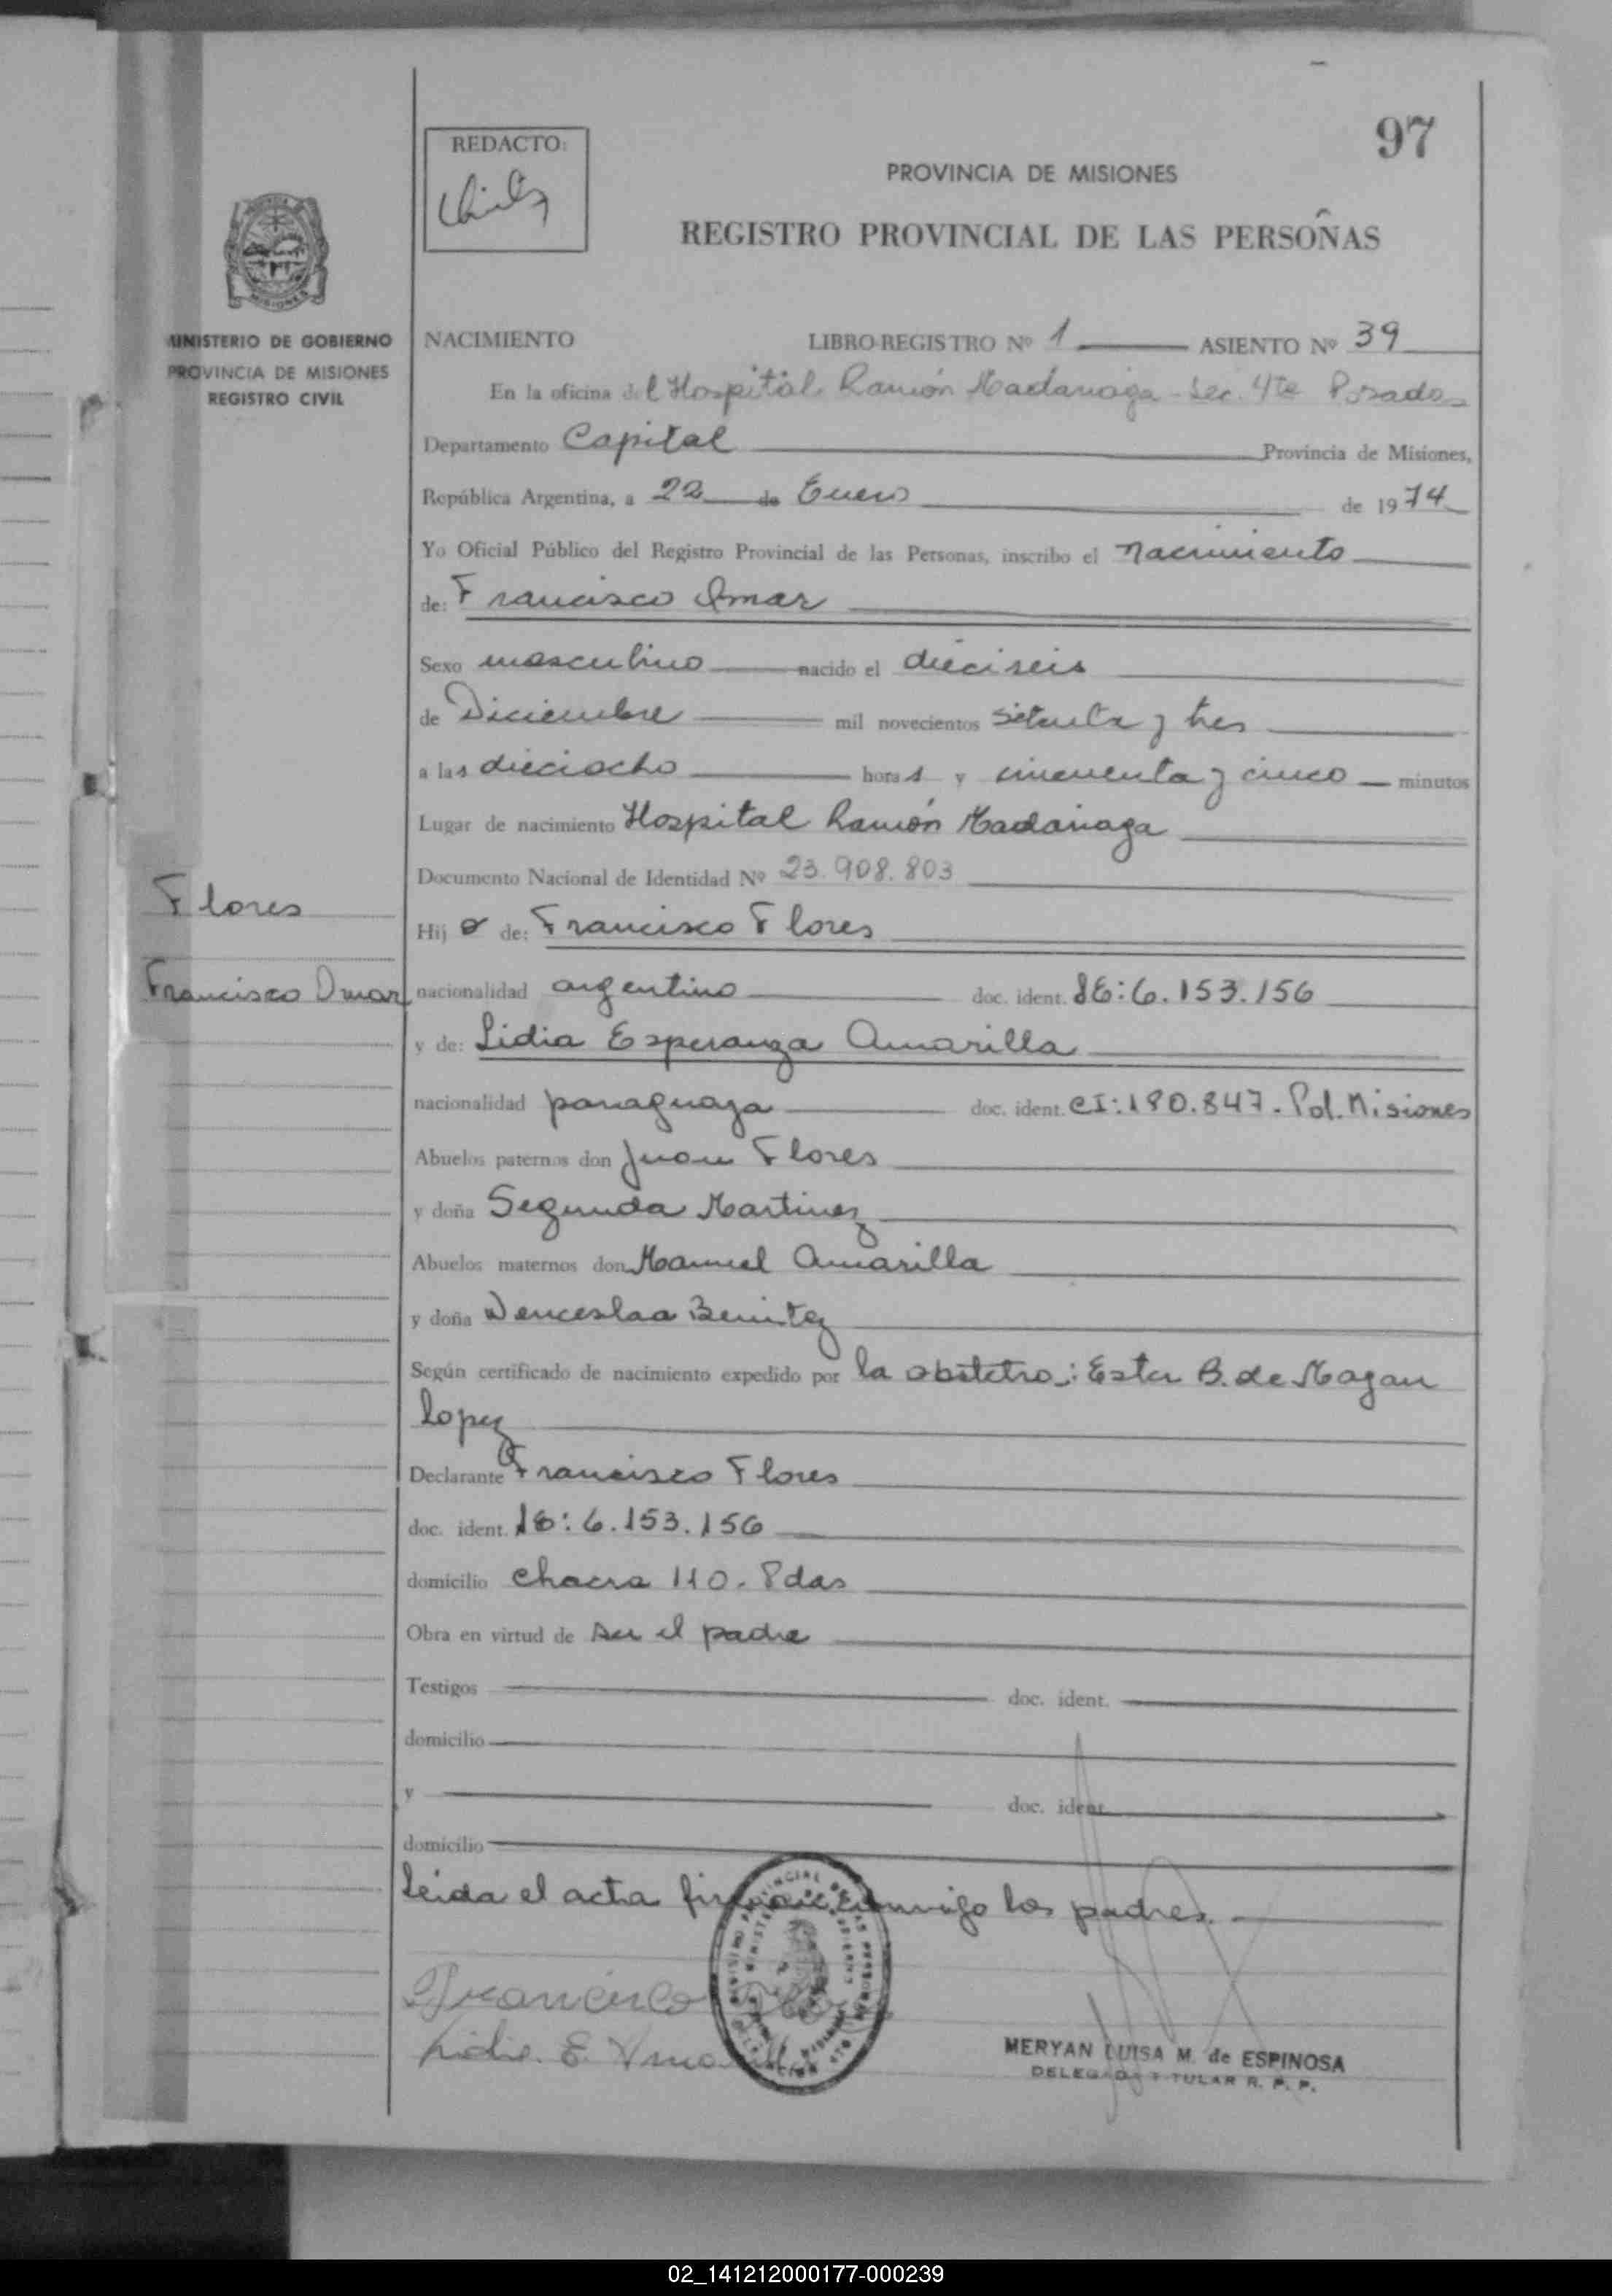 97
REDACTO:
PROVINCIA DE MISIONES
REGISTRO PROVINCIAL DE LAS PERSONAS
MINISTERIO DE GOBIERNO
PROVINCIA DE MISIONES
REGISTRO CIVIL
NACIMIENTO LIBRO-REGISTRO Nº 1 ASIENTO Nº 39
En la oficina del Hospital Ramón Madariaga - Sec. 4ta Posadas
Departamento Capital Provincia de Misiones,
República Argentina, a 22 de Enero de 1974
Yo Oficial Público del Registro Provincial de las Personas, inscribo el nacimiento
de: Francisco Omar
Sexo masculino nacido el dieciseis
de Diciembre mil novecientos setenta y tres
a las dieciocho horas y cincuenta y cinco minutos
Lugar de nacimiento Hospital Ramón Madariaga
Documento Nacional de Identidad Nº 23.908.803
Flores
Hijo de: Francisco Flores
Francisco Omar
nacionalidad argentino doc. ident. LE: 6.153.156
y de: Lidia Esperanza Amarilla
nacionalidad paraguaya doc. ident. CI: 180.847. Pol. Misiones
Abuelos paternos don Juan Flores
y doña Segunda Martinez
Abuelos maternos don Manuel Amarilla
y doña Wenceslaa Benitez
Según certificado de nacimiento expedido por la obstetra: Ester B. de Magan
Lopez
Declarante Francisco Flores
doc. ident. LE: 6.153.156
domicilio Chacra 110. Pdas
Obra en virtud de ser el padre
Testigos doc. ident.
domicilio
y doc. ident.
domicilio
Leida el acta firman conmigo los padres.
Francisco
Lidia E. Amarilla
MERYAN LUISA M. de ESPINOSA
DELEGADA TITULAR R. P. P.
02_141212000177-000239